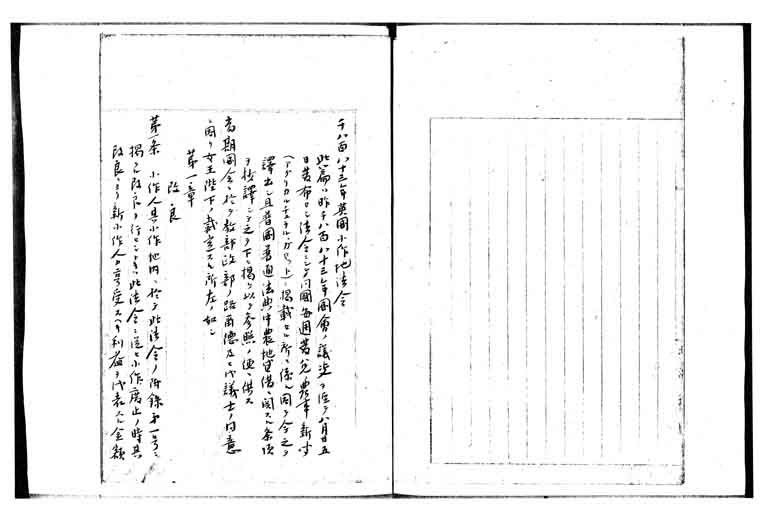 千八百八十三年英国小作地法令
此篇ハ昨千八百八十三年国會ノ議決ヲ経テ八月廿五
日発布セシ法令ニシテ同国毎週発兌ノ農事新聞
(アグリカルチュラル、ガゼット)ニ掲載セル所ニ係ル因テ今之ヲ
譯出シ且普国普通法典中農地貸借ニ関スル条項
ヲ抄譯シテ之ヲ下ニ掲ケ以テ参照ノ便ニ供ス
当期国会ニ於テ教部政部ノ路爾德及ヒ代議士ノ同意
ニ因リ女王陛下ノ裁定スル所左ノ如シ
第一章
改良
第一条 小作人其小作地内ニ於テ此法令ノ附録第一号ニ
掲クル改良ヲ行ヒシトキハ此法令ニ従ヒ小作廃止ノ時其
改良ニヨリ新小作人ノ享受スヘキ利益ヲ代表スル金額